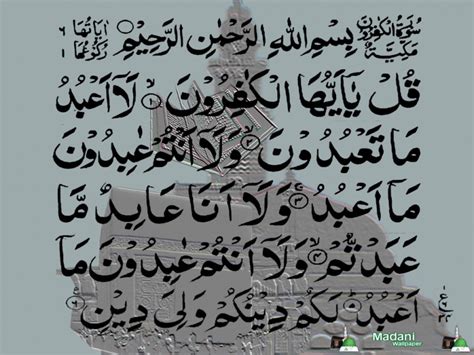 سُوْرَةُ الْكٰفِرُوْنَ مَكِّيَّةٌ بِسْمِ اللّٰهِ الرَّحْمٰنِ الرَّحِيْمِ اٰيَاتُهَا ٦ رُكُوْعُهَا ١
قُلْ يٰۤاَيُّهَا الْكٰفِرُوْنَ ۙ‏ ١ لَاۤ اَعْبُدُ
مَا تَعْبُدُوْنَ ۙ‏ ٢ وَلَاۤ اَنْتُمْ عٰبِدُوْنَ
مَاۤ اَعْبُدُ ۚ‏ ٣ وَلَاۤ اَنَا عَابِدٌ مَّا
عَبَدْتُّمْ ۙ‏ ٤ وَلَاۤ اَنْتُمْ عٰبِدُوْنَ مَاۤ
اَعْبُدُ ؕ‏ ٥ لَكُمْ دِيْنُكُمْ وَلِيَ دِيْنِ ٦
Madani
Wallpaper